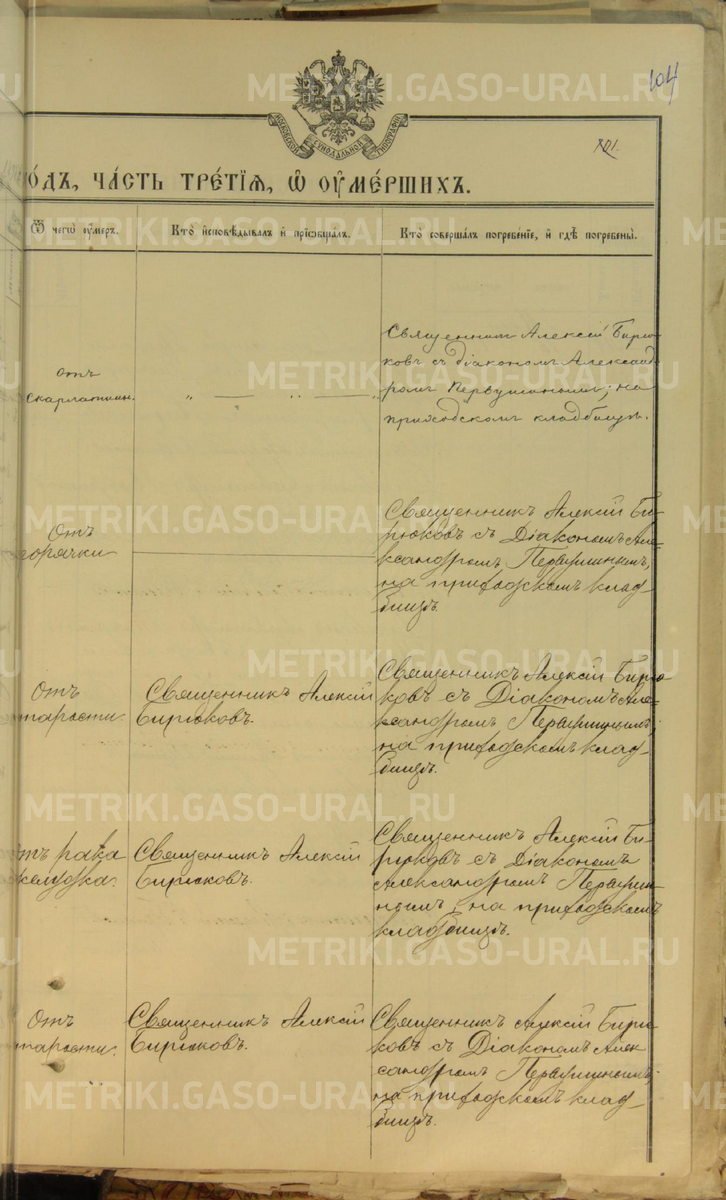 104
101.
МОСКОВСКОЙ СѴНОДАЛЬНОЙ ТИПОГРАФІИ
о́дъ, ча́сть тре́тїѧ, ѡ҆ ᲂу҆ме́ршихъ.
Ѿ чегѡ̀ ᲂу҆́меръ.
Кто̀ и҆сповѣ́дывалъ и҆ прїѡбща́лъ.
Кто̀ соверша́лъ погребе́нїе, и҆ гдѣ̀ погребены̀.
отъ
Скарлатины.
" — " — "
Священник Алексій Бирю-
ковъ съ діакономъ Александ-
ромъ Первушинымъ; на
приходскомъ кладбищѣ.
Отъ
горячки
Священникъ Алексій Би-
рюковъ съ Діакономъ Але-
ксандромъ Первушинымъ,
на приходскомъ клад-
бищѣ.
Отъ
старости
Священникъ Алексій
Бирюковъ.
Священникъ Алексій Бирю-
ковъ съ Діакономъ Але-
ксандромъ Первушинымъ,
на приходскомъ клад-
бищѣ.
отъ рака
желудка.
Священникъ Алексій
Бирюковъ.
Священникъ Алексій Би-
рюковъ съ Діакономъ
Александромъ Первуши-
нымъ, на приходскомъ
кладбищѣ.
Отъ
старости.
Священникъ Алексій
Бирюковъ.
Священникъ Алексій Бирю-
ковъ съ Діакономъ Алек-
сандромъ Первушинымъ,
на приходскомъ клад-
бищѣ.
METRIKI.GASO-URAL.RU